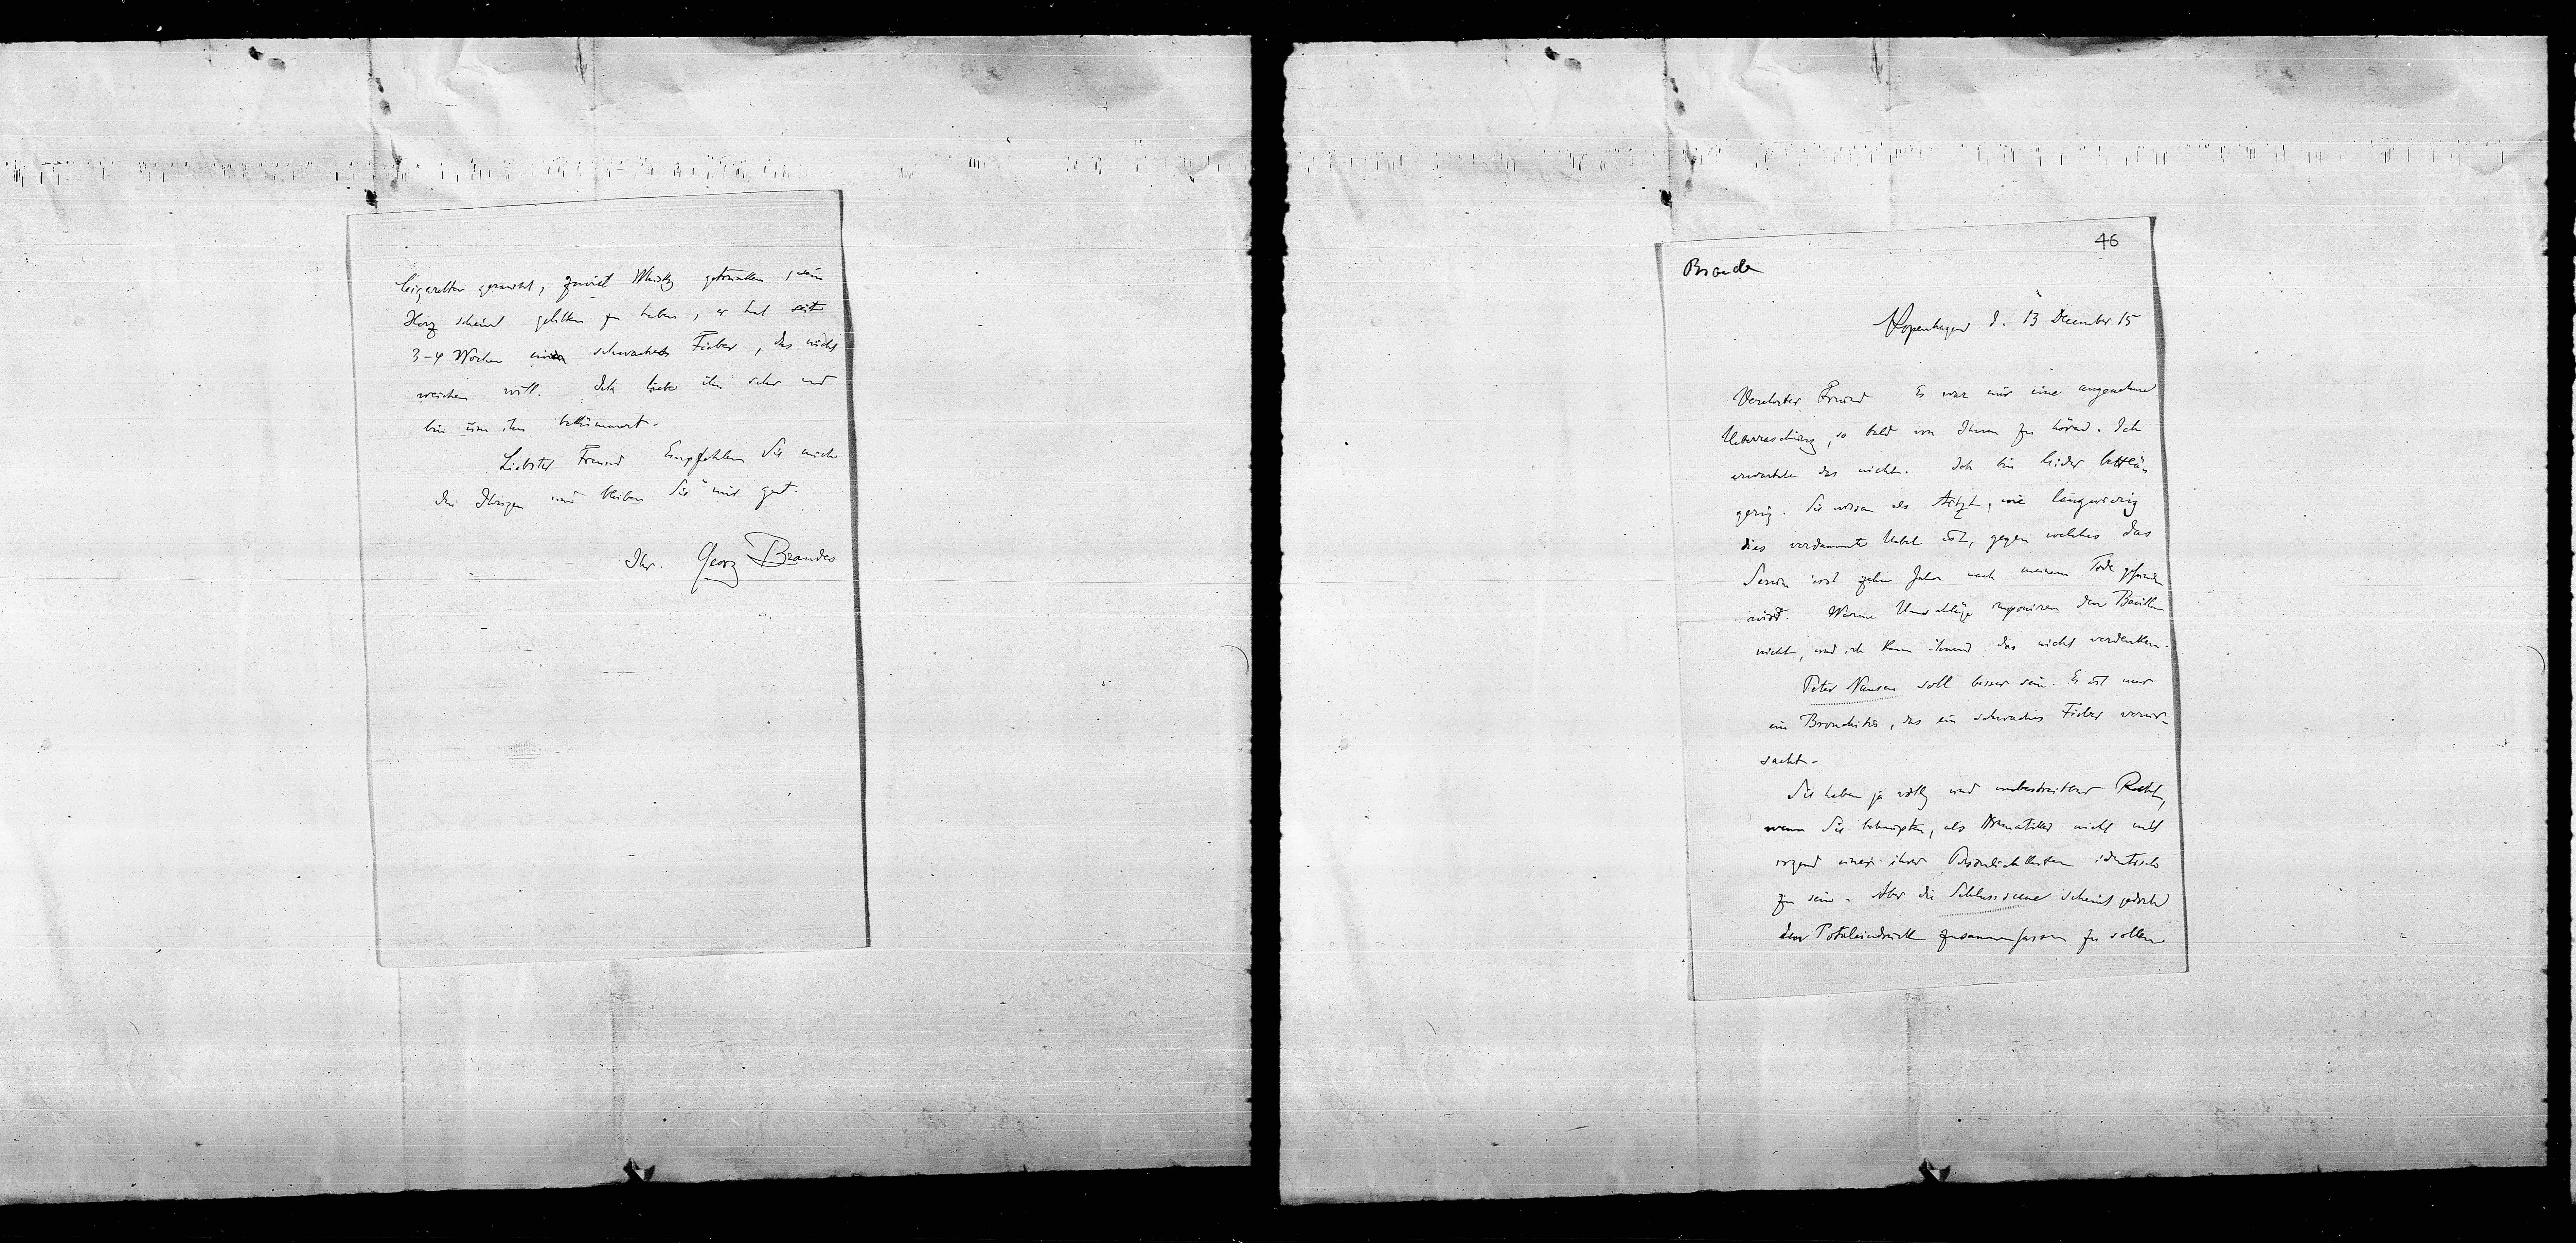 Cigaretten geraucht, zuviel Whisky getrunken, sein
Herz scheint gelitten zu haben, er hat seit
3-4 Wochen ein schwaches Fieber, das nicht
weichen will. Ich liebe ihn sehr und
bin um ihn bekümmert.
Liebster Freund Empfehlen Sie mich
den Ihrigen und bleiben Sie mir gut.
Ihr. Georg Brandes
46
Brandes
Kopenhagen d. 13 December 15
Verehrter Freund Es war mir eine angenehme
Ueberraschung, so bald von Ihnen zu hören. Ich
erwartete das nicht. Ich bin leider bettlä-
gerig. Sie wissen als Artzt, wie langwierig
dies verdammte Uebel ist, gegen welches das
Serum erst zehn Jahre nach meinem Tode gefunden
wird. Warme Umschläge imponiren den Bacillen
nicht, und ich kann ihnen das nicht verdenken.
Peter Nansen soll besser sein. Es ist nur
ein Bronchitis, das ein schwaches Fieber verur-
sacht.
Sie haben ja völlig und unbestreitbar Recht,
wenn Sie behaupten, als Dramatiker nicht mit
irgend einer ihrer Persönlichkeiten identisch
zu sein. Aber die Schlussscene scheint jedoch
den Totaleindruck zusammenfassen zu sollen